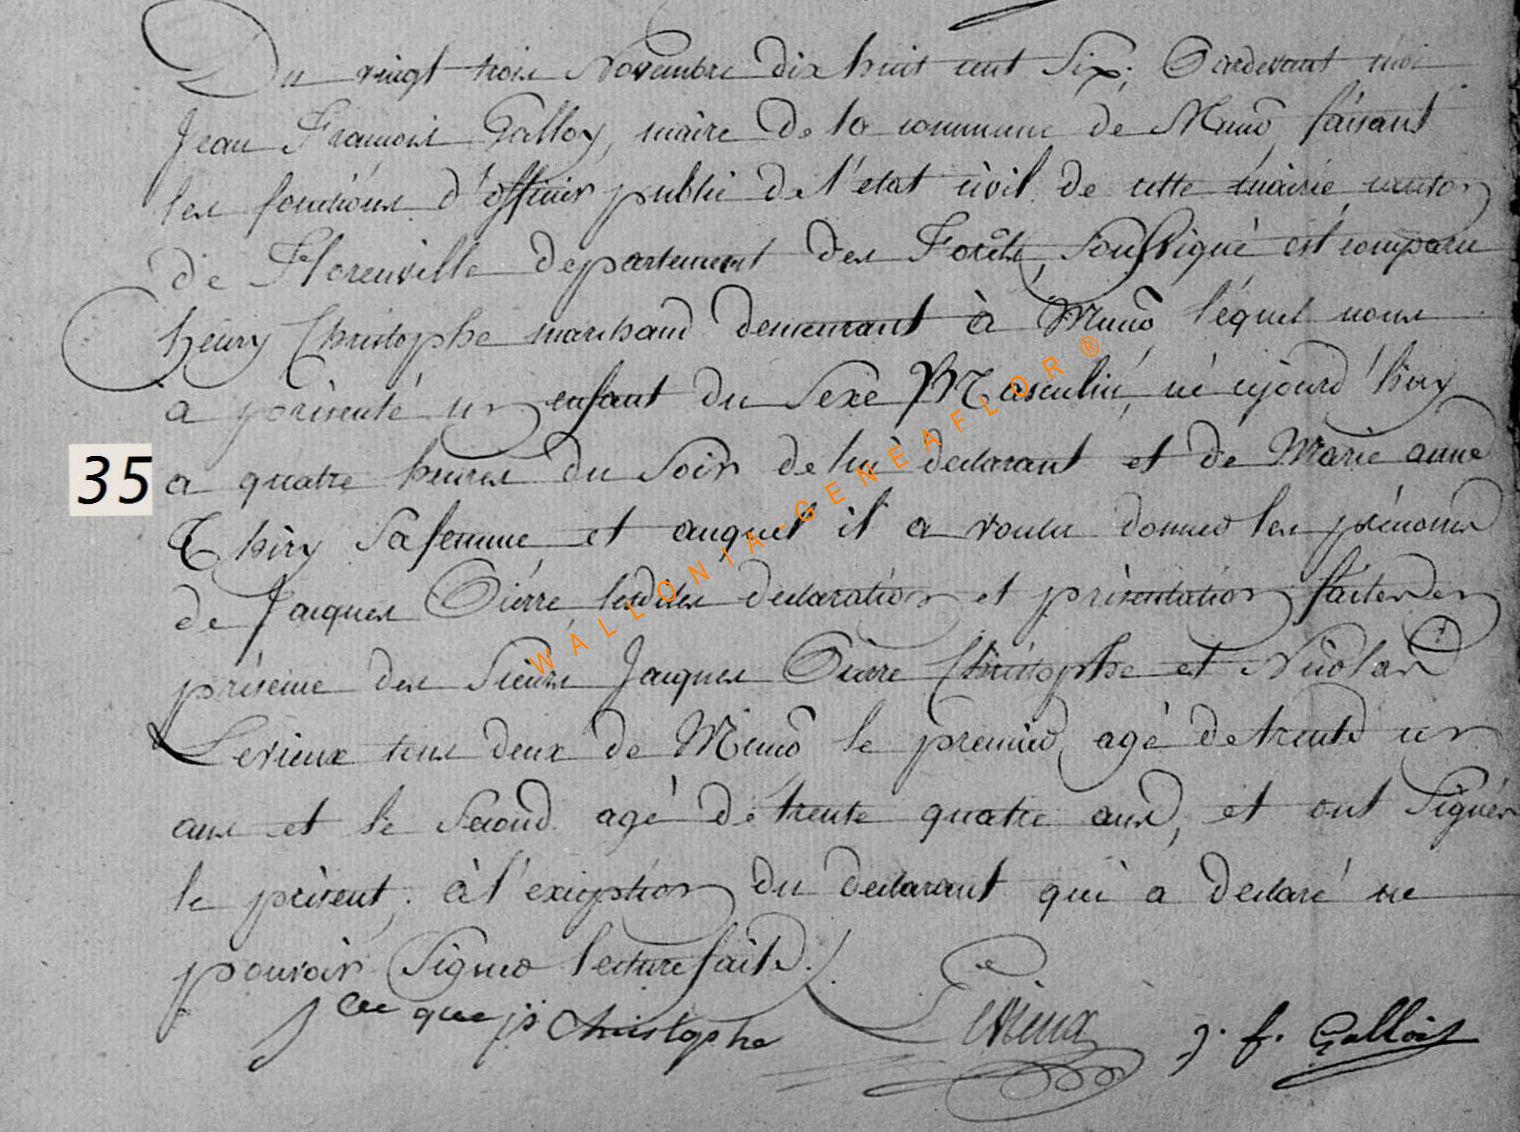 Du vingt trois Novembre dix huit cent Six; Pardevant moi
Jean Francois Galloy, maire De la commune de Muno, faisant
les fonctions d'officier public De l'etat civil de cette mairie, canton
de Florenville departement des Forêts, Soussigné est comparu
henry Christophe marchand demeurant à Muno, lequel nous
a présenté un enfant du Sexe Masculin, né cejourd'huy
35 a quatre heures du Soir de lui declarant et de Marie anne
Thiry Sa femme et auquel il a voulu donner les prénoms
de Jacques Pierre, lesdites declaration et présentation faites en
présence des Sieurs Jacques Pierre Christophe et Nicolas
Levieux tous deux de Muno le premier, agé de trente un
ans et le Second agé de trente quatre ans, et ont Signés
le présent, à l'exception du declarant qui a declaré ne
pouvoir Signer lecture faite./.
Jacque jp Christophe Levieux j. f. Gallois
WALLONIA-GENEAFLOR®